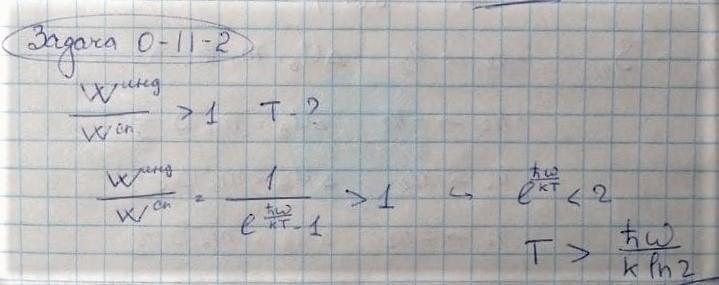 Задача 0-11-2
W^инд / W^сп > 1 T - ?
W^инд / W^сп = 1 / (e^(ħω/kT) - 1) > 1 ↪ e^(ħω/kT) < 2
T > ħω / (k ln 2)